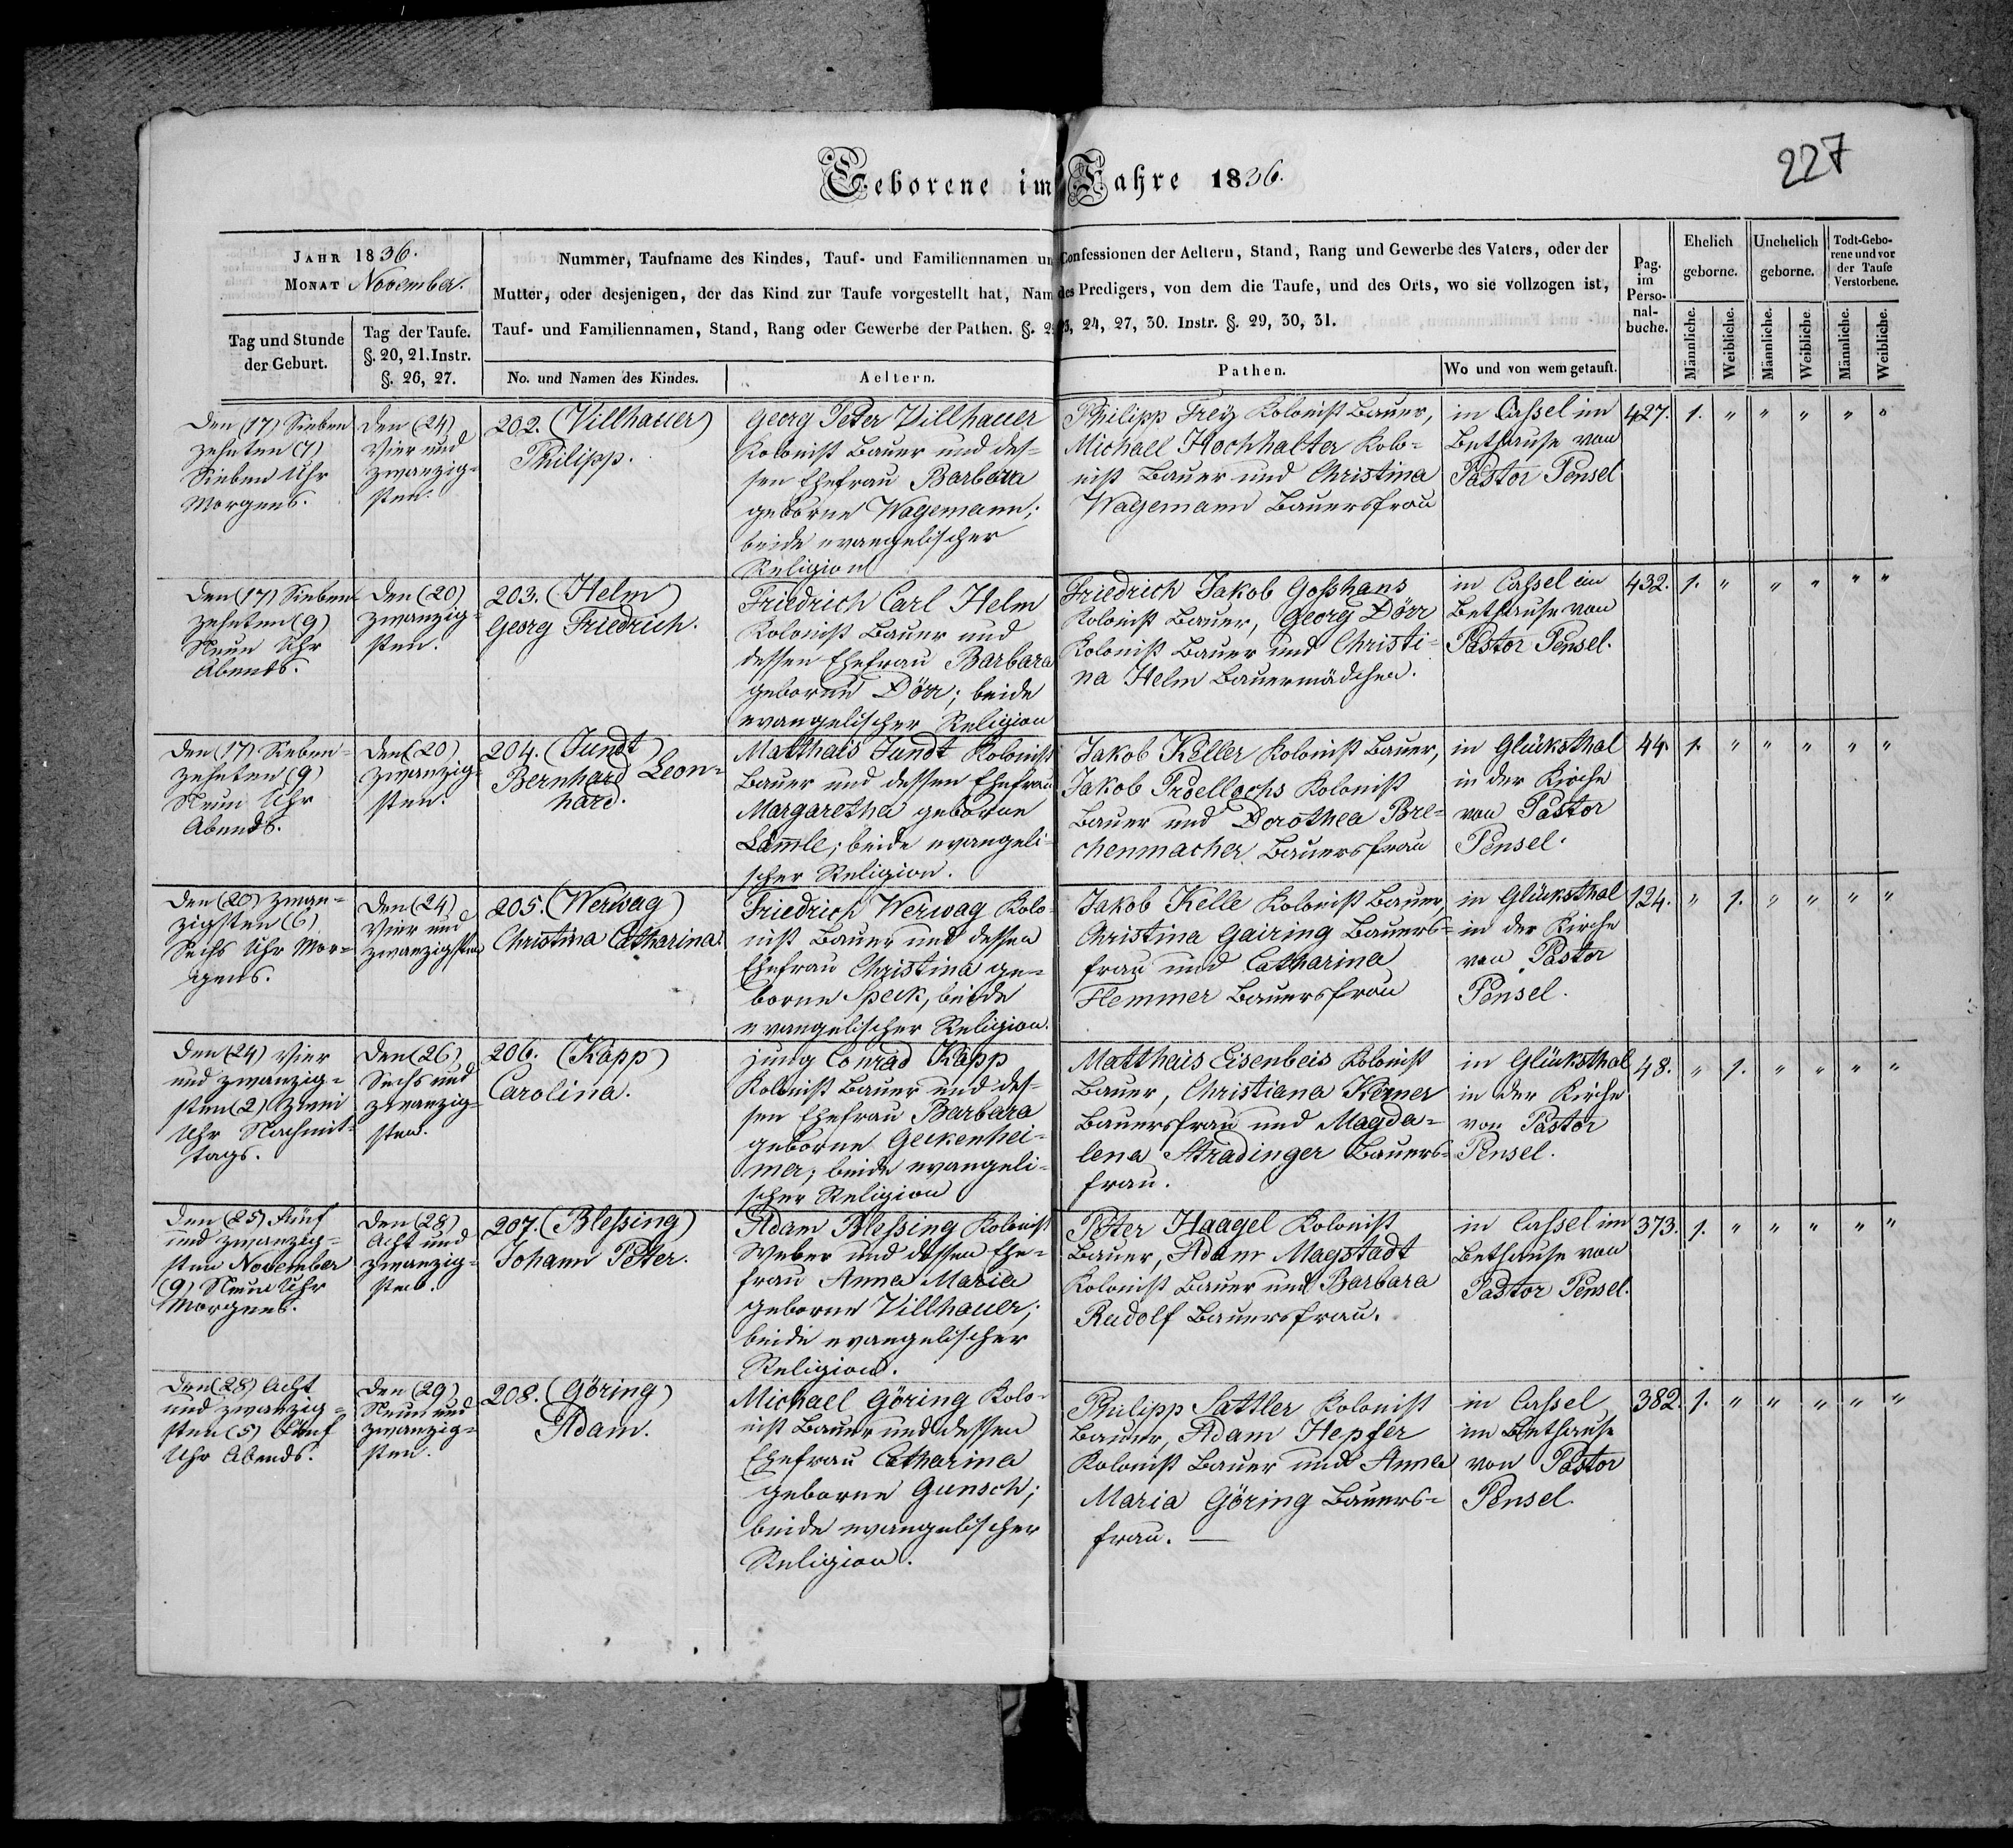 Geborene im Jahre 1836.
227
JAHR 1836.
MONAT November.
Nummer, Taufname des Kindes, Tauf- und Familiennamen un Confessionen der Aeltern, Stand, Rang und Gewerbe des Vaters, oder der
Mutter, oder desjenigen, der das Kind zur Taufe vorgestellt hat, Nam des Predigers, von dem die Taufe, und des Orts, wo sie vollzogen ist,
Tauf- und Familiennamen, Stand, Rang oder Gewerbe der Pathen. §. 23, 24, 27, 30. Instr. §. 29, 30, 31.
Pag.
im
Perso-
nal-
buche.
Ehelich
geborne.
Unehelich
geborne.
Todt-Gebo-
rene und vor
der Taufe
Verstorbene.
Tag und Stunde
der Geburt.
Tag der Taufe.
§. 20, 21. Instr.
§. 26, 27.
No. und Namen des Kindes.
Aeltern.
Pathen.
Wo und von wem getauft.
Männliche.
Weibliche.
Männliche.
Weibliche.
Männliche.
Weibliche.
Den (17) Sieben
zehnten (7)
Sieben Uhr
Morgens.
Den (24)
Vier und
zwanzig-
sten.
202. (Villhauer)
Philipp.
Georg Peter Villhauer
Kolonist Bauer und des-
sen Ehefrau Barbara
geborne Wagemann;
beide evangelischer
Religion
Philipp Frey Kolonist Bauer,
Michael Hochhalter Kolo-
nist Bauer und Christina
Wagemann Bauersfrau
in Cassel im
Bethause von
Pastor Pensel
427. 1. " " " " "
Den (17) Sieben
zehnten (9)
Neun Uhr
Abends.
Den (20)
zwanzig-
sten.
203. (Helm)
Georg Friedrich.
Friedrich Carl Helm
Kolonist Bauer und
dessen Ehefrau Barbara
geborne Dörr; beide
evangelischer Religion
Friedrich Jakob Gosshans
Kolonist Bauer, Georg Dörr
Kolonist Bauer und Christi-
na Helm Bauermädchen.
in Cassel im
Bethause von
Pastor Pensel.
432. 1. " " " " "
Den (17) Sieben-
zehnten (9)
Neun Uhr
Abends.
Den (20)
zwanzig-
sten.
204. (Jundt)
Bernhard Leon-
hard.
Matthais Jundt Kolonist
Bauer und dessen Ehefrau
Margaretha geborne
Lämmle; beide evangeli-
scher Religion.
Jakob Keller Kolonist Bauer,
Jakob Proellochs Kolonist
Bauer und Dorothea Bre-
chenmacher Bauersfrau
in Glücksthal
in der Kirche
von Pastor
Pensel.
44. 1. " " " " "
Den (20) zwan-
zigsten (6)
Sechs Uhr Mor-
gens.
Den (24)
Vier und
zwanzigsten
205. (Werwag)
Christina Catharina.
Friedrich Werwag Kolo-
nist Bauer und dessen
Ehefrau Christina ge-
borne Speck, beide
evangelischer Religion.
Jakob Kelle Kolonist Bauer,
Christina Gairing Bauers-
frau und Catharina
Flemmer Bauersfrau
in Glücksthal
in der Kirche
von Pastor
Pensel.
124. " 1. " " " "
Den (24) Vier
und zwanzig-
sten (2) Zwei
Uhr Nachmit-
tags.
Den (26)
Sechs und
zwanzig-
sten.
206. (Kapp)
Carolina.
jung Conrad Kapp
Kolonist Bauer und des-
sen Ehefrau Barbara
geborne Geckenhei-
mer; beide evangeli-
scher Religion
Matthais Eisenbeis Kolonist
Bauer, Christiana Kerner
Bauersfrau und Magda-
lena Stradinger Bauers-
frau.
in Glücksthal
in der Kirche
von Pastor
Pensel.
48. " 1. " " " "
Den (25) Fünf
und zwanzig-
sten November
(9) Neun Uhr
Morgens.
Den (28)
Acht und
zwanzig-
sten.
207. (Blessing)
Johann Peter.
Adam Blessing Kolonist
Weber und dessen Ehe-
frau Anna Maria
geborne Villhauer;
beide evangelischer
Religion.
Peter Haagel Kolonist
Bauer, Adam Magstadt
Kolonist Bauer und Barbara
Rudolf Bauersfrau.
in Cassel im
Bethause von
Pastor Pensel.
373. 1. " " " " "
Den (28) Acht
und zwanzig-
sten (5) Fünf
Uhr Abends.
Den (29)
Neun und
zwanzig-
sten.
208. (Göring)
Adam.
Michael Göring Kolo-
nist Bauer und dessen
Ehefrau Catharina
geborne Gunsch;
beide evangelischer
Religion.
Philipp Sattler Kolonist
Bauer, Adam Hepfer
Kolonist Bauer und Anna
Maria Göring Bauers-
frau. —
in Cassel
im Bethause
von Pastor
Pensel
382. 1. " " " " "